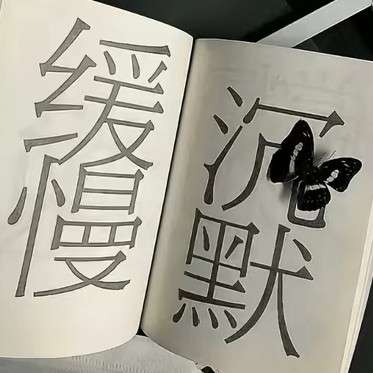 缓慢
沉默